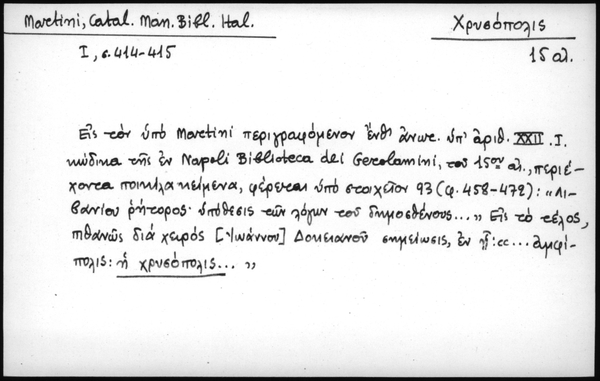 Martini, Catal. Man. Bibl. Ital.
Χρυσόπολις
I, σ. 414-415
15 αἰ.
Εἰς τὸν ὑπὸ Martini περιγραφόμενον ἔνθ' ἀνωτ. ὑπ' ἀριθ. XXII. I.
κώδικα τῆς ἐν Napoli Biblioteca dei Gerolamini, τοῦ 15ου αἰ., περιέ-
χοντα ποικίλα κείμενα, φέρεται ὑπὸ στοιχεῖον 93 (φ. 458-472): "Λι-
βανίου ῥήτορος· ὑπόθεσις τῶν λόγων τοῦ δημοσθένους... ,, Εἰς τὸ τέλος,
πιθανῶς διὰ χειρὸς [Ἰωάννου] Δοκειανοῦ σημείωσις, ἐν ᾗ: "... ἀμφί-
πολις: ἡ χρυσόπολις... ,,